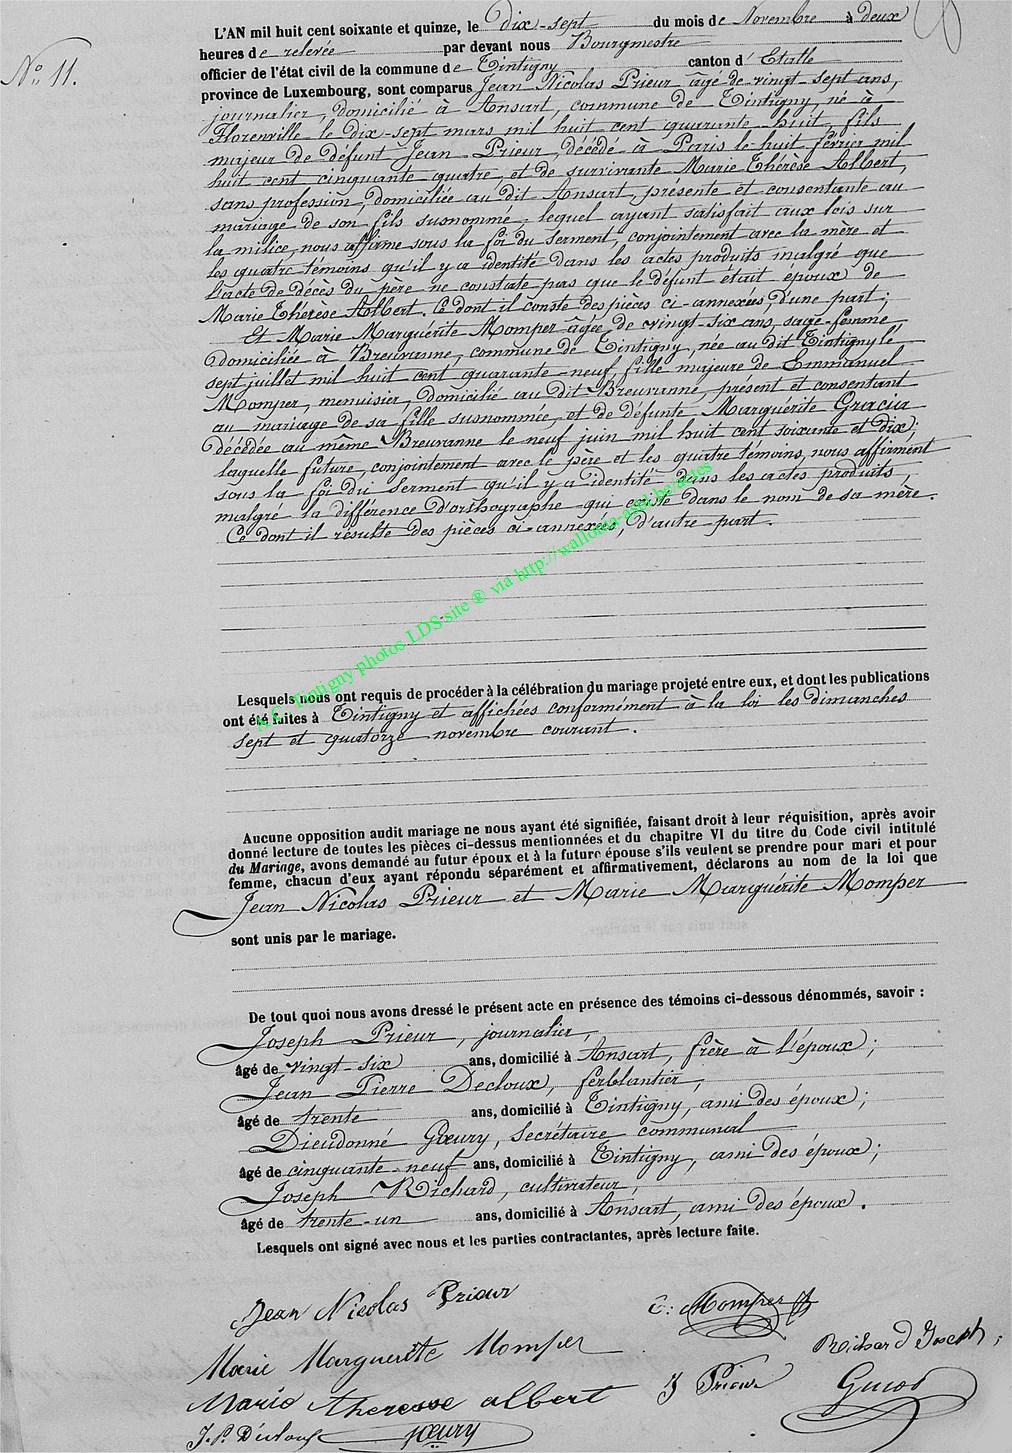 N° 11.
L'AN mil huit cent soixante et quinze, le dix-sept du mois de Novembre à deux
heures de relevée par devant nous Bourgmestre
officier de l'état civil de la commune de Tintigny canton d'Etalle
province de Luxembourg, sont comparus Jean Nicolas Prieur âgé de vingt-sept ans,
journalier, domicilié à Ansart, commune de Tintigny, né à
Florenville le dix-sept mars mil huit cent quarante-huit, fils
majeur de défunt Jean Prieur, décédé à Paris le huit février mil
huit cent cinquante quatre, et de survivante Marie Thérèse Albert,
sans profession, domiciliée au dit Ansart, présente et consentante au
mariage de son fils susnommé, lequel ayant satisfait aux lois sur
la milice, nous affirme sous la foi du serment, conjointement avec la mère et
les quatre témoins qu'il y a identité dans les actes produits malgré que
l'acte de décès du père ne constate pas que le défunt était époux de
Marie Thérèse Albert. Ce dont il conste des pièces ci-annexées, d'une part;
Et Marie Marguérite Momper âgée de vingt-six ans, sage-femme,
domiciliée à Breuvanne, commune de Tintigny, née au dit Tintigny le
sept juillet mil huit cent quarante-neuf, fille majeure de Emmanuel
Momper, menuisier, domicilié au dit Breuvanne, présent et consentant
au mariage de sa fille susnommée, et de défunte Marguérite Gracia
décédée au même Breuvanne le neuf juin mil huit cent soixante et dix;
laquelle future, conjointement avec le père et les quatre témoins, nous affirment
sous la foi du serment qu'il y a identité dans les actes produits,
malgré la différence d'orthographe qui existe dans le nom de sa mère.
Ce dont il résulte des pièces ci-annexées, d'autre part.
A.E. Tintigny photos LDS site ® via http://wallonia-asbl.be/actes
Lesquels nous ont requis de procéder à la célébration du mariage projeté entre eux, et dont les publications
ont été faites à Tintigny et affichées conformément à la loi les dimanches
sept et quatorze novembre courant.
Aucune opposition audit mariage ne nous ayant été signifiée, faisant droit à leur réquisition, après avoir
donné lecture de toutes les pièces ci-dessus mentionnées et du chapitre VI du titre du Code civil intitulé
du Mariage, avons demandé au futur époux et à la future épouse s'ils veulent se prendre pour mari et pour
femme, chacun d'eux ayant répondu séparément et affirmativement, déclarons au nom de la loi que
Jean Nicolas Prieur et Marie Marguérite Momper
sont unis par le mariage.
De tout quoi nous avons dressé le présent acte en présence des témoins ci-dessous dénommés, savoir :
Joseph Prieur, journalier,
âgé de vingt-six ans, domicilié à Ansart, frère à l'époux;
Jean Pierre Decloux, ferblantier,
âgé de trente ans, domicilié à Tintigny, ami des époux;
Dieudonné Gœury, secrétaire communal
âgé de cinquante-neuf ans, domicilié à Tintigny, ami des époux;
Joseph Richard, cultivateur,
âgé de trente-un ans, domicilié à Ansart, ami des époux.
Lesquels ont signé avec nous et les parties contractantes, après lecture faite.
Jean Nicolas Prieur
E: Momper
Richard Joseph
Marie Marguerite Momper
J Prieur
Marie theresse albert
J.P. Decloux gœury